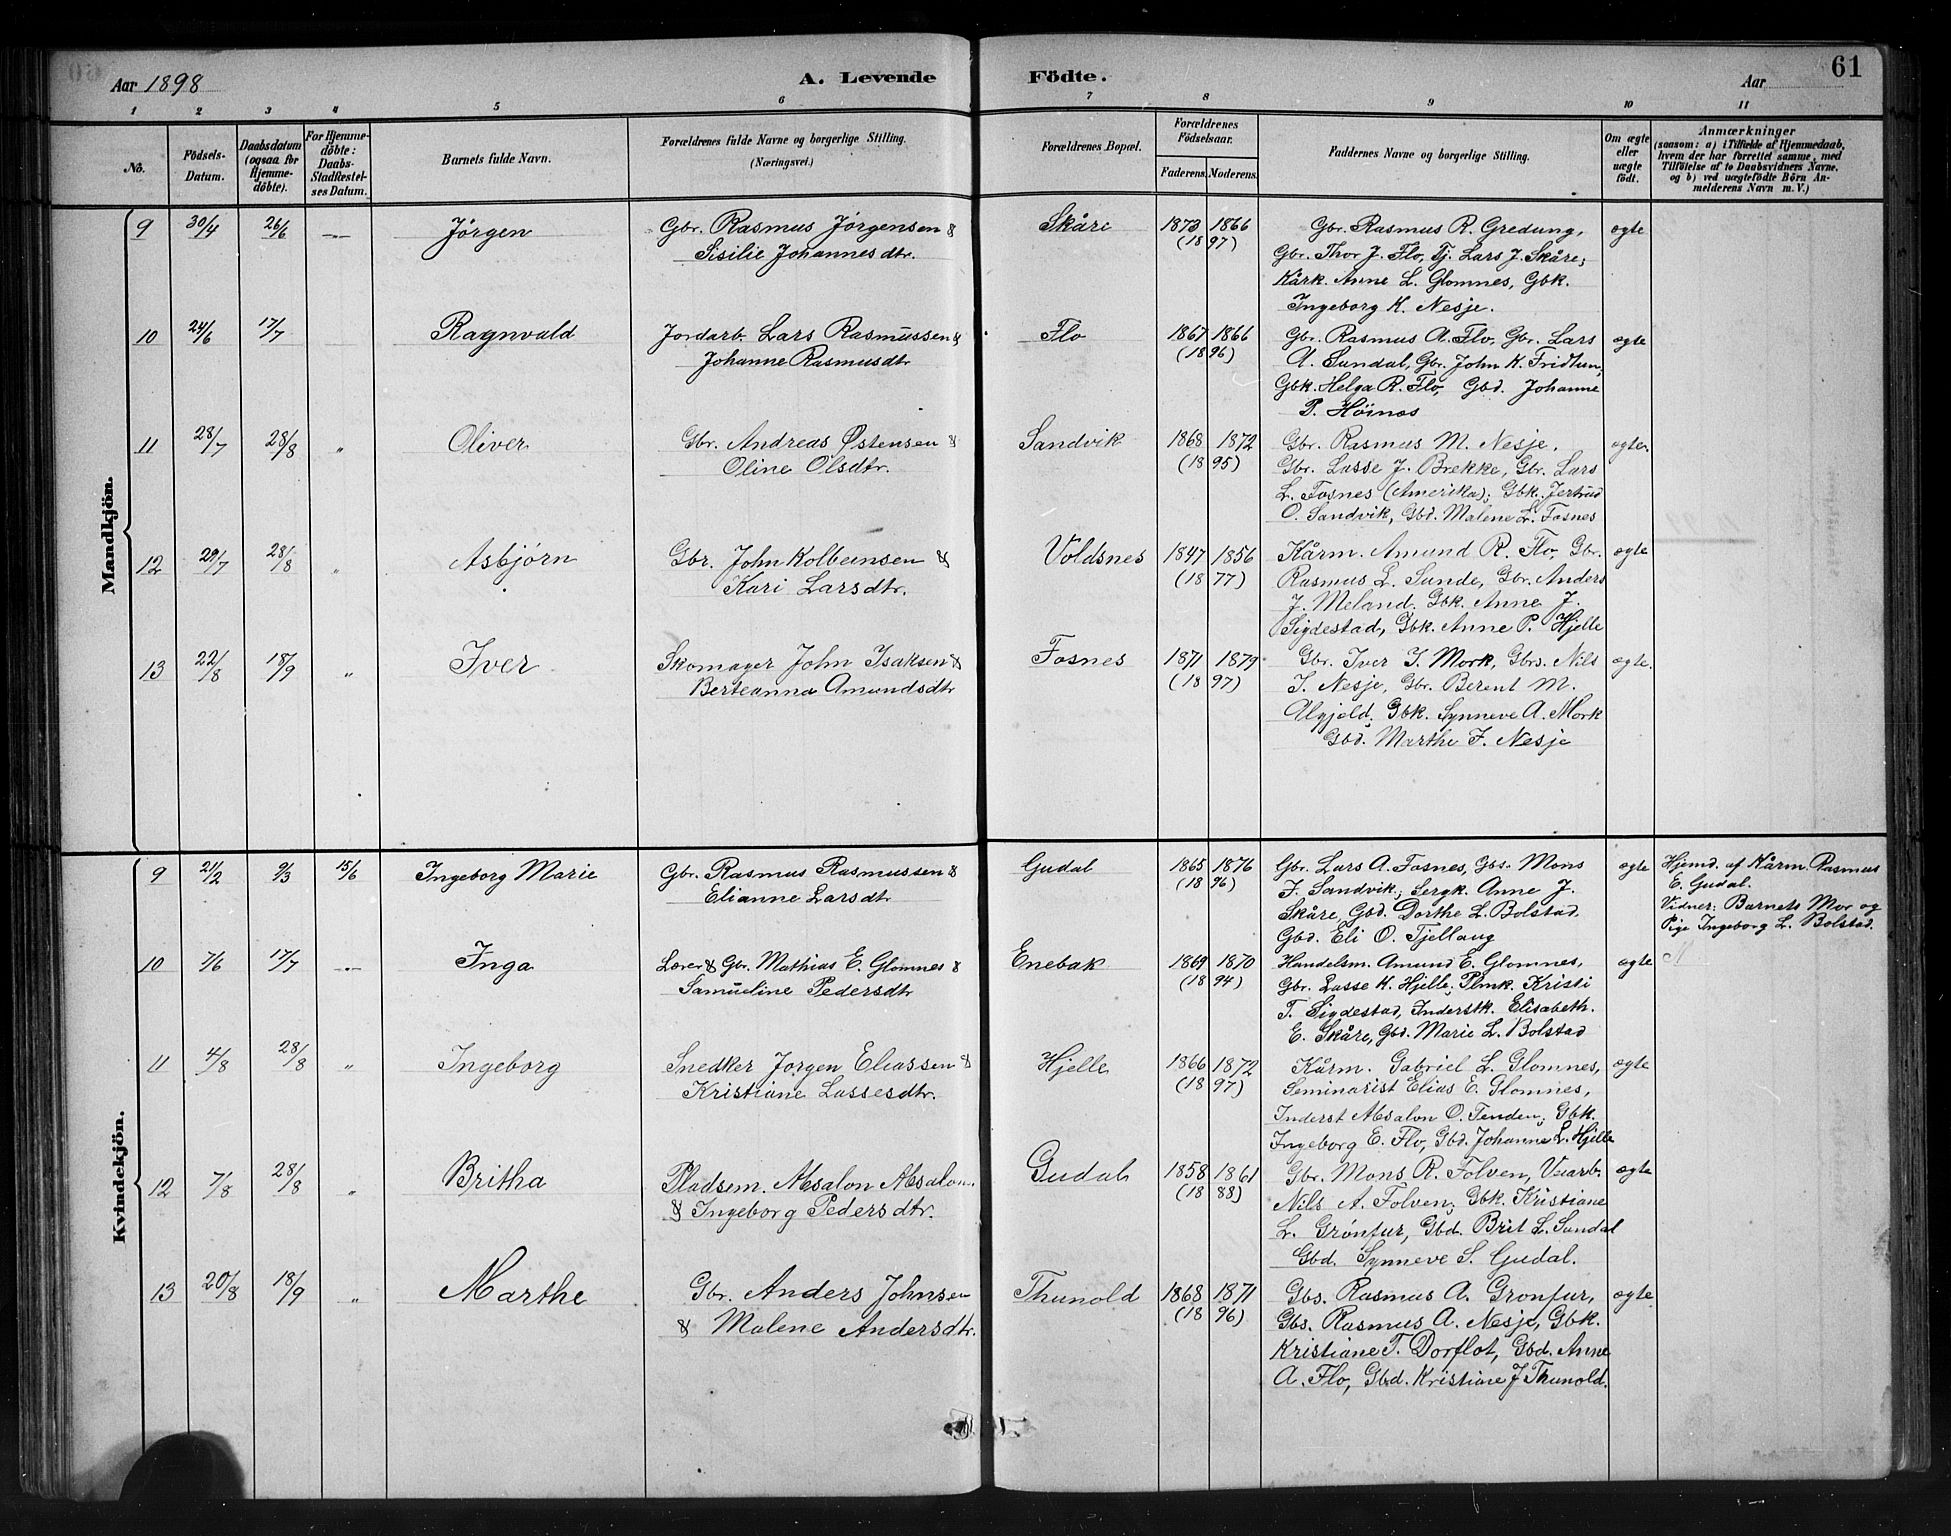 Aar 1898
A. Levende
Födte.
Aar
61
1 2 3 4 5 6 7 8 9 10 11
No.
Födsels-
Datum.
Daabsdatum
(ogsaa for
Hjemme-
döbte).
For Hjemme-
döbte:
Daabs-
Stadfæstel-
ses Datum.
Barnets fulde Navn.
Forældrenes fulde Navne og borgerlige Stilling.
(Næringsvei.)
Forældrenes Bopæl.
Forældrenes
Födselsaar.
Faderens. Moderens.
Faddernes Navne og borgerlige Stilling.
Om ægte
eller
uægte
födt.
Anmærkninger
(saasom: a) i Tilfælde af Hjemmedaab,
hvem der har forrettet samme, med
Tilföielse af to Daabsvidners Navne.
og b) ved uægtefödte Börn An-
melderens Navn m. V.)
Mandkjön.
9 30/4 26/6 — Jörgen Gbr. Rasmus Jörgensen & Skåre 1873 1866 Gbr. Rasmus R. Gredung, ægte
Sisilie Johannesdtr. (1897) Gbr. Thor J. Flo, Tj. Lars J. Skåre;
Kårk. Anne L. Glomnes, Gbk.
Ingeborg K. Nesje.
10 24/6 17/7 Ragnvald Jordarb. Lars Rasmussen & Flo 1867 1866 Gbr. Rasmus A. Flo, Gbr. Lars ægte
Johanne Rasmusdtr (1896) A. Sundal, Gbr. John K. Fridlun,
Gbk. Helga R. Flo, Gbd. Johanne
P. Höines
11 28/7 28/8 " Oliver Gbr. Andreas Østensen & Sandvik 1868 1872 Gbr. Rasmus M. Nesje, ægte.
Oline Olsdtr. (1895) Gbr. Lasse J. Brekke, Gbr. Lars
L. Fosnes (Amerika); Gbk. Jertrud
O. Sandvik, Gbd. Malene L. Fosnes
12 29/7 28/8 " Asbjørn Gbr. John Kolbeinsen & Voldsnes 1847 1856 Kårm. Amund R. Flo, Gbr. ægte
Kari Larsdtr. (1877) Rasmus L. Sunde, Gbr. Anders
J. Meland. Gbk. Anne J.
Sigdestad, Gbk. Anne P. Hjelle
13 22/8 18/9 " Iver Skomager John Isaksen & Fosnes 1871 1879 Gbr. Iver I. Mork, Gbrs. Nils ægte.
Berteanna Amundsdtr (1897) I. Nesje, Gbr. Berent M.
Ulgjeld; Gbk. Synneve A. Mork
Gbd. Marthe I. Nesje
Kvindekjön.
9 21/2 9/3 15/6 Ingeborg Marie Gbr. Rasmus Rasmussen & Gudal 1865 1876 Gbr. Lars A. Fosnes, Gbs. Mons ægte Hjemd. af Kårm. Rasmus
Elianne Larsdtr (1896) J. Sandvik; Sergk. Anne J. E. Gudal.
Skåre, Gbd. Dorthe L. Bolstad. Vidner: Barnets Mor og
Gbd. Eli O. Tjellaug Pige Ingeborg L. Bolstad.
10 7/6 17/7 — Inga Lærer & Gbr. Mathias E. Glomnes & Enebak 1869 1870 Handelsm. Amund E. Glomnes, ægte
Samueline Pedersdtr (1894) Gbr. Lasse K. Hjelle; Plmk. Kristi
T. Sigdestad, Inderstk. Elisabeth.
E. Skåre, Gbd. Marie L. Bolstad
11 4/8 28/8 " Ingeborg Snedker Jørgen Eliassen & Hjelle 1866 1872 Kårm. Gabriel L. Glomnes, ægte
Kristiane Lassesdtr. (1897) Seminarist Elias E. Glomnes,
Inderst Absalon O. Tenden; Gbk.
Ingeborg E. Flo, Gbd. Johanne L. Hjelle
12 7/8 28/8 " Britha Pladsem. Absalon Absalon. Gudal 1858 1861 Gbr. Mons R. Folven, Veiarb. ægte
& Ingeborg Pedersdtr. (1888) Nils A. Folven; Gbk. Kristiane
L. Grønfur, Gbd. Brit L. Sundal
Gbd. Synneve S. Gudal.
13 20/8 18/9 " Marthe Gbr. Anders Johnsen Thunold 1868 1871 Gbs. Rasmus A. Gronfur, ægte
& Malene Andersdtr. (1896) Gbs. Rasmus A. Nesje, Gbk.
Kristiane T. Dorflot, Gbd. Anne
A. Flo, Gbd. Kristiane J Thunold.